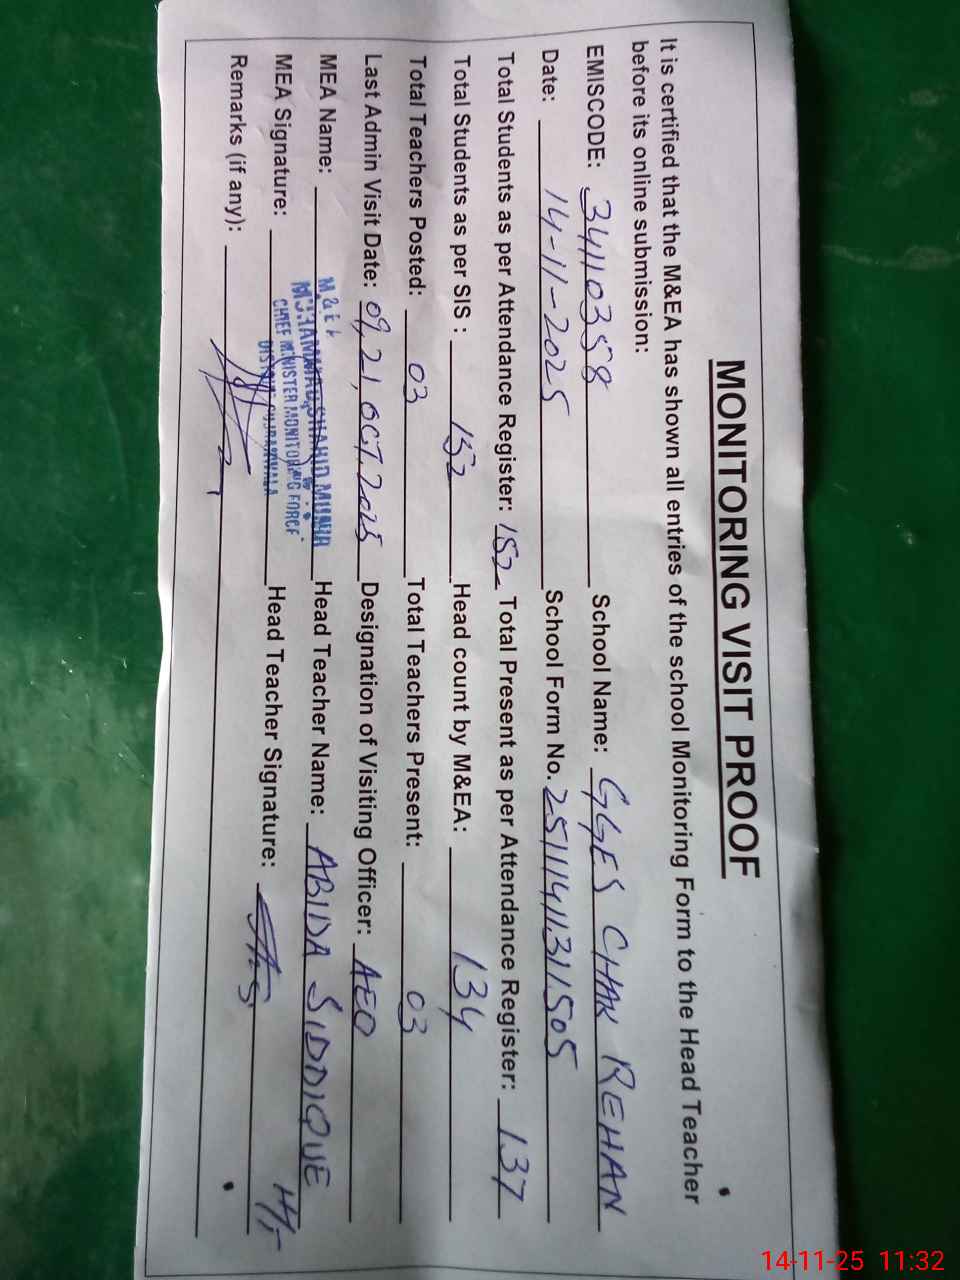 MONITORING VISIT PROOF
It is certified that the M&EA has shown all entries of the school Monitoring Form to the Head Teacher
before its online submission:
EMISCODE: 34110358 School Name: GGES CHAK REHAN
Date: 14-11-2025 School Form No. 25111411311505
Total Students as per Attendance Register: 152 Total Present as per Attendance Register: 137
Total Students as per SIS : 152 Head count by M&EA: 134
Total Teachers Posted: 03 Total Teachers Present: 03
Last Admin Visit Date: 09, 21, OCT, 2025 Designation of Visiting Officer: AEO
MEA Name: Head Teacher Name: ABIDA SIDDIQUE
MEA Signature: Head Teacher Signature:
CHIEF MINISTER MONITORING FORCE
DISTRICT GUJRANWALA
Remarks (if any):
14-11-25 11:32